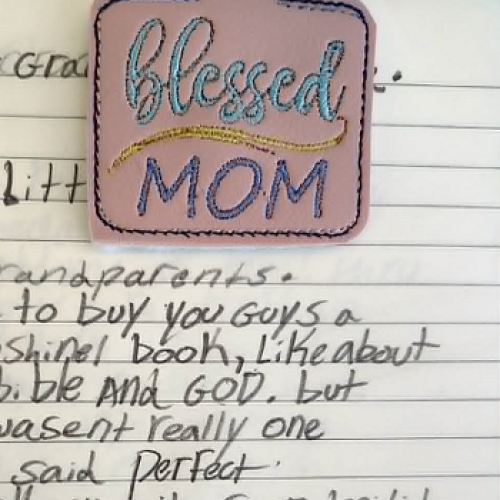 Gra
blessed
MOM
Litt
randparents.
to buy you Guys a
shinel book, Like about
bible AND GOD. but
wasent really one
said perfect.